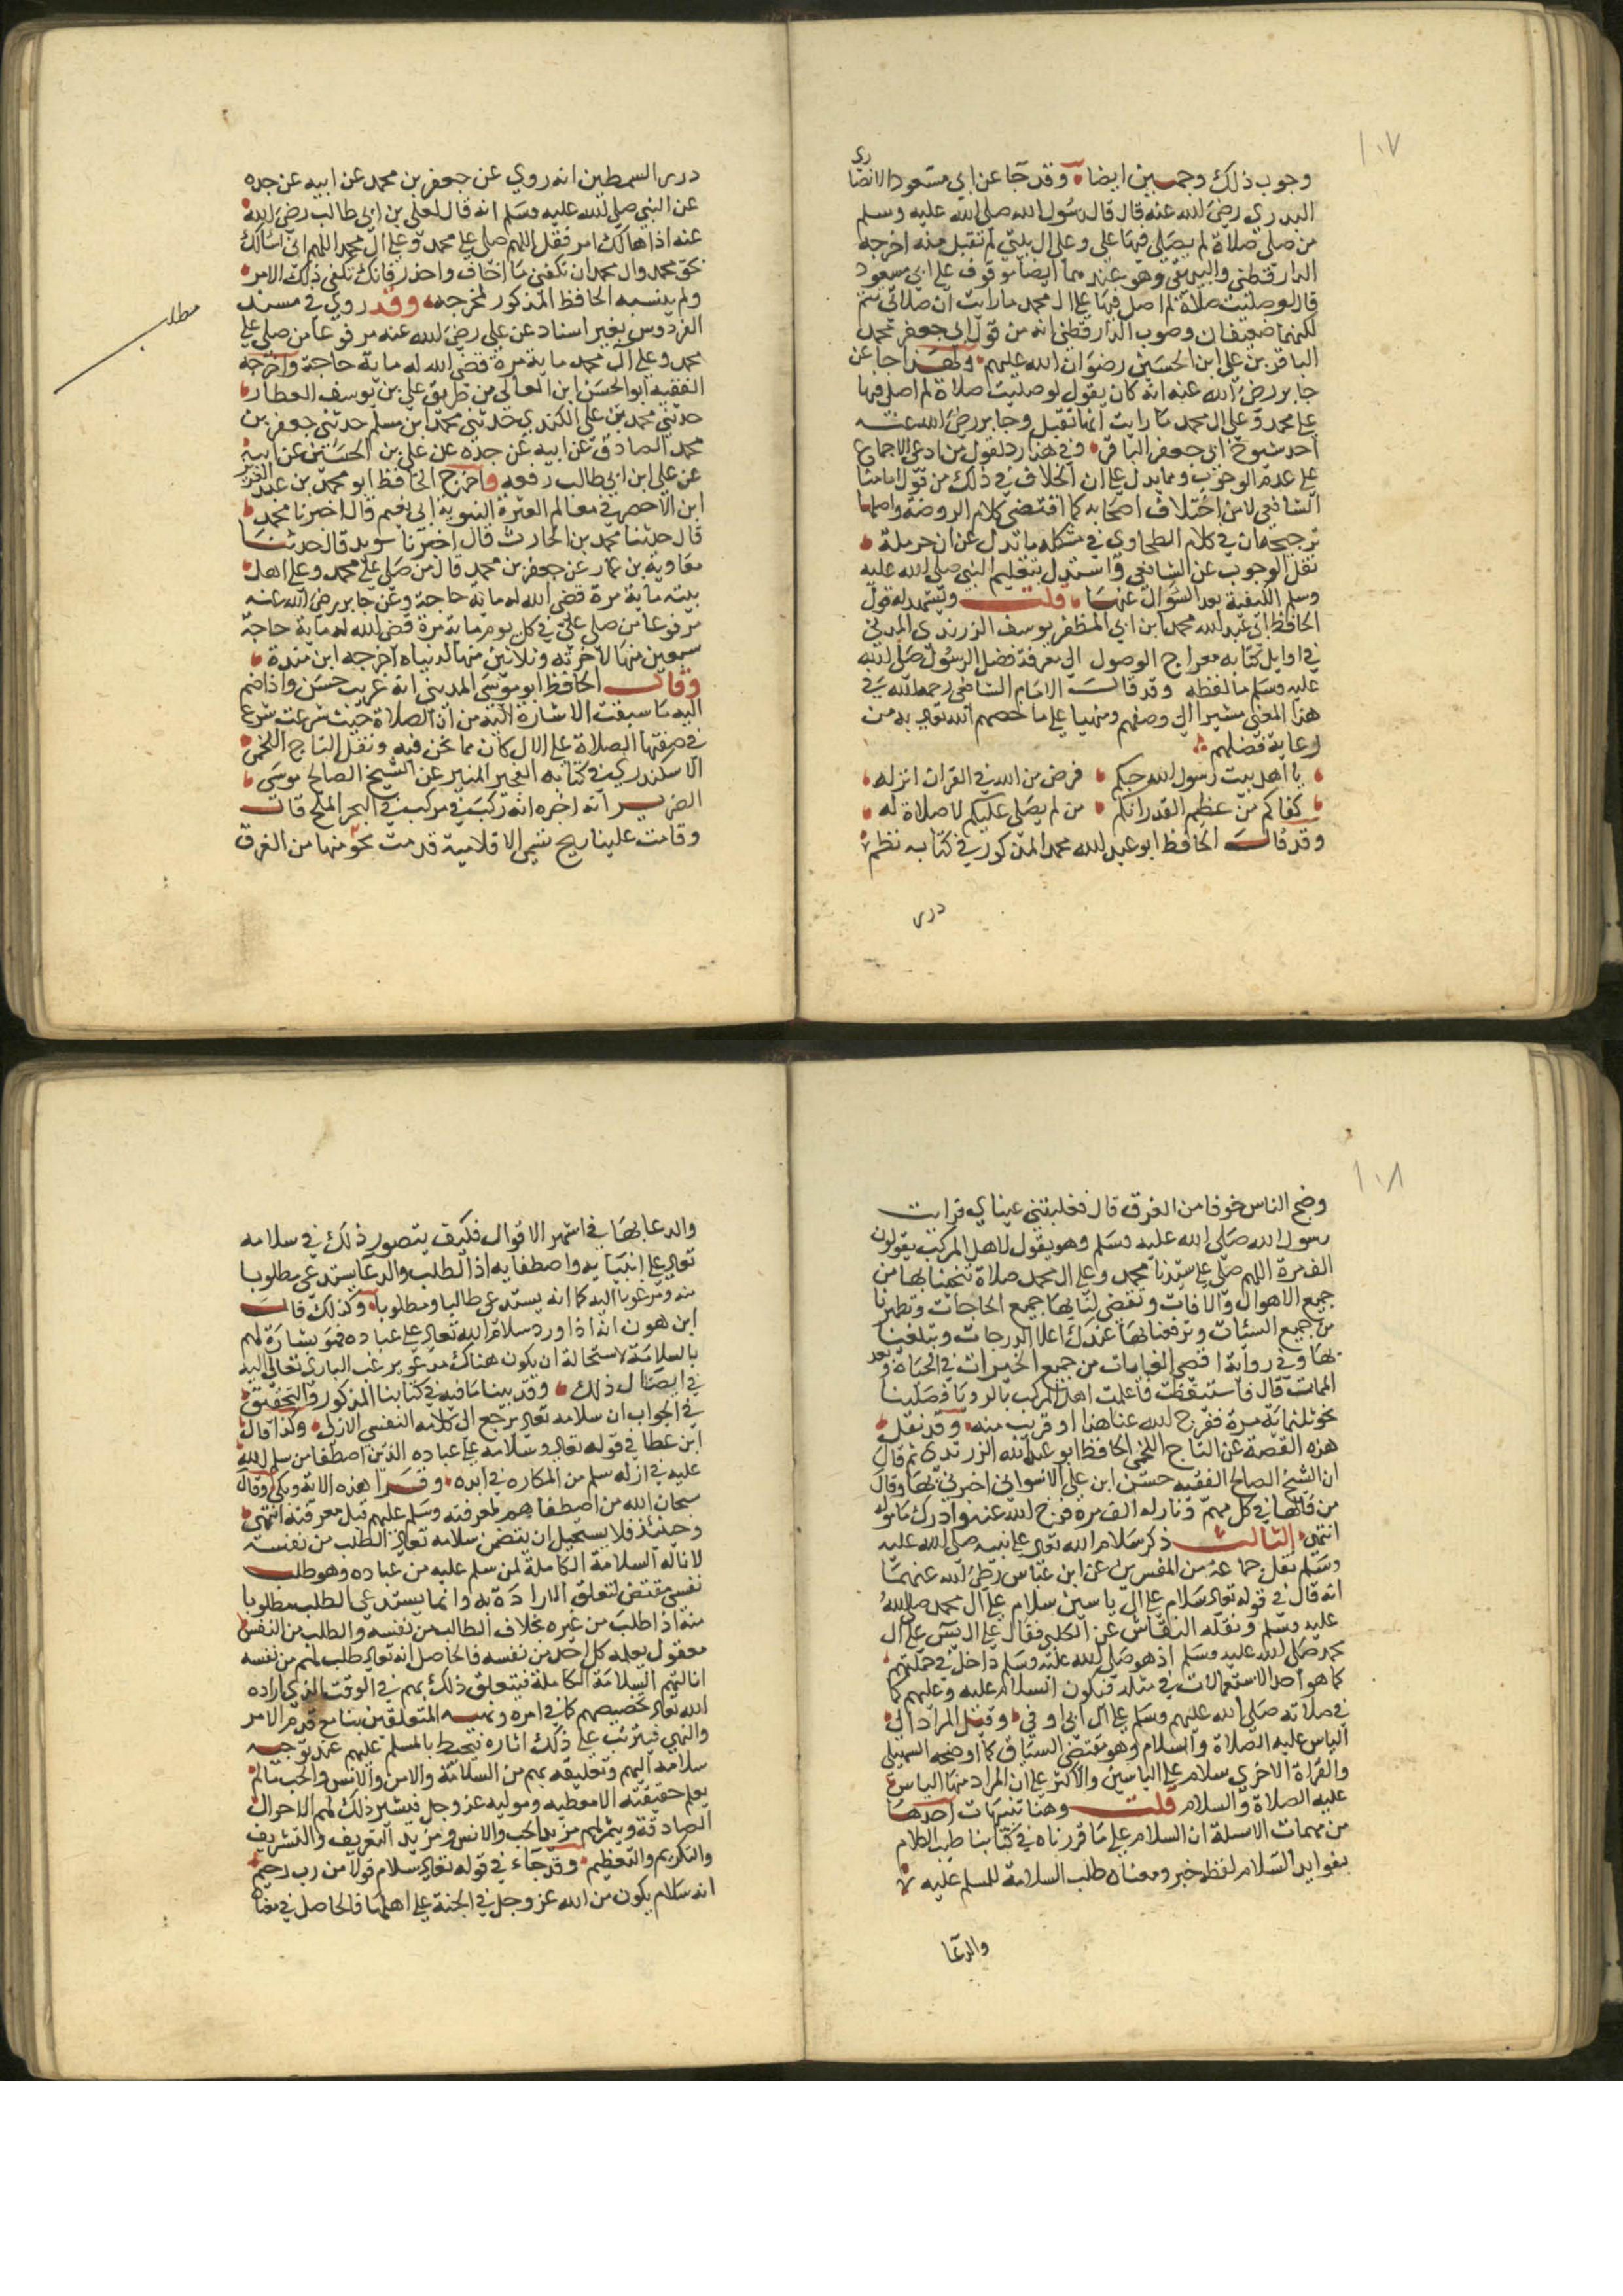 ١٠٧
وجوب ذلك وجهين ايضا وقد جا عن ابي مسعود الانصاري
البدري رضي الله عنه قال قال رسول الله صلى الله عليه وسلم
من صلى صلاة لم يصلي فيها علي وعلى ال بيتي لم تقبل منه اخرجه
الدارقطني والبيهقي وهو عندهما ايضا موقوف على ابي مسعود
قال لو صليت صلاة لم اصل فيها على ال محمد ما رايت ان صلاتي تتم
لكنهما ضعيفان وصوب الدارقطني انه من قول ابي جعفر محمد
الباقر بن علي ابن الحسين رضوان الله عليهم وهكذا جا عن
جابر رضي الله عنه انه كان يقول لو صليت صلاة لم اصل فيها
على محمد وعلى ال محمد ما رايت انها تقبل وجابر رضي الله عنه
احد شيوخ ابي جعفر الباقر وفي هذا رد لقول من ادعى الاجماع
على عدم الوجوب ومما يدل على ان الخلاف في ذلك من قول امامنا
الشافعي لا من اختلاف اصحابه كما اقتضى كلام الروضة واصلها
ترجيحه ان في كلام الطحاوي في مشكله ما يدل على ان حرملة
نقل الوجوب عن الشافعي واستدل بتعليم النبي صلى الله عليه
وسلم الكيفية بعد السوال عنها قلت ويشهد له قول
الحافظ ابي عبد الله محمد ابن ابي المظفر يوسف الزرندي المدني
في اوايل كتابه معراج الوصول الى معرفة فضل الرسول صلى الله
عليه وسلم ما لفظه وقد قال الامام الشافعي رحمه الله في
هذا المعنى مشيرا الى وصفهم ومنهيا على ما خصهم الله تعالى به من
رعاية فضلهم
يا اهل بيت رسول الله حبكم فرض من الله في القران انزله
كفاكم من عظيم القدر انكم من لم يصلي عليكم لا صلاة له
وقد قال الحافظ ابو عبد الله محمد المذكور في كتابه نظم
درر
درر السمطين انه روي عن جعفر بن محمد عن ابيه عن جده
عن النبي صلى الله عليه وسلم انه قال لعلي بن ابي طالب رضي الله
عنه اذا هالك امر فقل اللهم صلي على محمد وعلى ال محمد اللهم اني اسالك
بحق محمد وال محمد ان تكفني ما اخاف واحذر فانك تكفى ذلك الامر
ولم ينسبه الحافظ المذكور لمخرجه وقد روي في مسند
مطلب
الفردوس بغير اسناد عن علي رضي الله عنه مرفوعا من صلى على
محمد وعلى ال محمد ماية مرة قضى الله له ماية حاجة واخرجه
الفقيه ابو الحسن ابن المعالي من طريق علي بن يوسف العطار
حدثني محمد بن علي الكندي حدثني محمد ابن مسلم حدثني جعفر بن
محمد الصادق عن ابيه عن جده عن علي بن الحسين عن ابيه
عن علي ابن ابي طالب رفعه واخرج الحافظ ابو محمد بن عبد العزيز
ابن الاخضر في معالم العترة النبوية ابي نعيم قال اخبرنا محمد
قال حدثنا محمد بن الحارث قال اخبرنا سويد قال حدثنا
معاوية بن عمار عن جعفر بن محمد قال من صلى على محمد وعلى اهل
بيته ماية مرة قضى الله له ماية حاجة وعن جابر رضي الله عنه
مرفوعا من صلى علي في كل يوم ماية مرة قضى الله له ماية حاجة
سبعين منها لاخرته وثلاثين منها لدنياه اخرجه ابن مندة
وقال الحافظ ابو موسى المديني انه غريب حسن واذا ضم
اليه ما سبقت الاشارة اليه من ان الصلاة حيث شرعت شرع
في صفتها الصلاة على الال كان مما نحن فيه ونقل التاج اللخمي
الاسكندري في كتابه الفجر المنير عن الشيخ الصالح موسى
الضرير انه اخبره انه ركب في مركب في البحر الملح قال
وقامت علينا ريح تسمى الاقلابية قدمت نحو منها من الغرق
١٠٨
وضج الناس خوفا من الغرق قال فغلبتني عيناي فرايت
رسول الله صلى الله عليه وسلم وهو يقول لاهل المركب يقولون
الف مرة اللهم صلي على سيدنا محمد وعلى ال محمد صلاة تنجينا بها من
جميع الاهوال والافات وتقضي لنا بها جميع الحاجات وتطهرنا
من جميع السئات وترفعنا بها عندك اعلا الدرجات وتبلغنا
بها وفي رواية اقصى الغايات من جميع الخيرات في الحياة وبعد
الممات قال فاستيقظت فاعلمت اهل المركب بالرويا فصلينا
نحو ثلثماية مرة ففرج الله عنا هذا او قريب منه وقد نقل
هذه القصة عن التاج اللخمي الحافظ ابو عبد الله الزرندي ثم قال
ان الشيخ الصالح الفقيه حسن ابن علي الاسواني اخبرني بها وقال
من قالها في كل مهم ونازلة الف مرة فرج الله عنه وادرك ماموله
انتهى الثالث ذكر سلام الله تعالى على نبيه صلى الله عليه
وسلم نقل جماعة من المفسرين عن ابن عباس رضي الله عنهما
انه قال في قوله تعالى سلام على ال ياسين سلام على ال محمد صلى الله
عليه وسلم ونقله النقاش عن الكلبي فقال على ال يس على ال
محمد صلى الله عليه وسلم اذ هو صلى الله عليه وسلم داخل في جملتهم
كما هو احد الاستعمالات في مثله فيكون السلام عليه وعليهم كما
في صلاته صلى الله عليهم وسلم على ال ابي اوفى وقيل المراد الي
الياس عليه الصلاة والسلام وهو مقتضى السياق كما اوضحه السهيلي
والقراة الاخرى سلام على الياسين والاكثر على ان المراد منها الياس
عليه الصلاة والسلام قلت وهنا تنبيهات احدها
من مهمات الاسئلة ان السلام على ما قررناه في كتابنا طيب الكلام
بفوايد السلام لفظه خبر ومعناه طلب السلامة للمسلم عليه
والدعا
والدعا بها في اشهر الاقوال فكيف يتصور ذلك في سلامه
تعالى على انبيايه واصطفايه اذ الطلب والدعا يستدعي مطلوبا
منه ومرغوبا اليه كما انه يستدعي طالبا ومطلوبا وكذلك قال
ابن هون انه اذا ورد سلام الله تعالى على عباده فهو بشارة لهم
بالسلامة لاستحالة ان يكون هناك مدعو يرغب الباري تعالى اليه
في ايصال ذلك وقد بينا ما فيه في كتابنا المذكور والتحقيق
في الجواب ان سلامه تعالى يرجع الى كلامه النفسي الازلي وكذا قال
ابن عطا في قوله تعالى وسلامه على عباده الذين اصطفا من سلم الله
عليه في ازله سلم من المكاره في ابده وقسرا هذه الاية وبكى وقال
سبحان الله من اصطفاهم لمعرفته وسلم عليهم قبل معرفته انتهى
وحينئذ فلا يستحيل ان يتضمن سلامه تعالى الطلب من نفسه
لانالة السلامة الكاملة لمن سلم عليه من عباده وهو طلب
نفسي مقتض لتعلق الارادة به وانما يستدعي الطلب مطلوبا
منه اذا طلب من غيره بخلاف الطالب من نفسه والطلب من النفس
معقول يعلمه كل احد من نفسه فالحاصل انه تعالى طلب لهم من نفسه
انالتهم السلامة الكاملة فيتعلق ذلك بهم في الوقت الذي اراده
الله تعالى تخصيصهم كما في امره ونهيه المتعلقين بنا مع قدم الامر
والنهي فيترتب على ذلك اثاره فتحيط بالمسلم عليهم عند توجه
سلامه اليهم وتعليقه بهم من السلامة والامن والانس والحب ما لم
يعلم حقيقته الا معطيه وموليه عز وجل فيشير ذلك لهم الاحوال
الصادقة ويثمر لهم مزيد الحب والانس ومزيد التعريف والتشريف
والتكريم والتعظيم وقد جاء في قوله تعالى سلام قولا من رب رحيم
انه سلام يكون من الله عز وجل في الجنة على اهلها فالحاصل في معناه